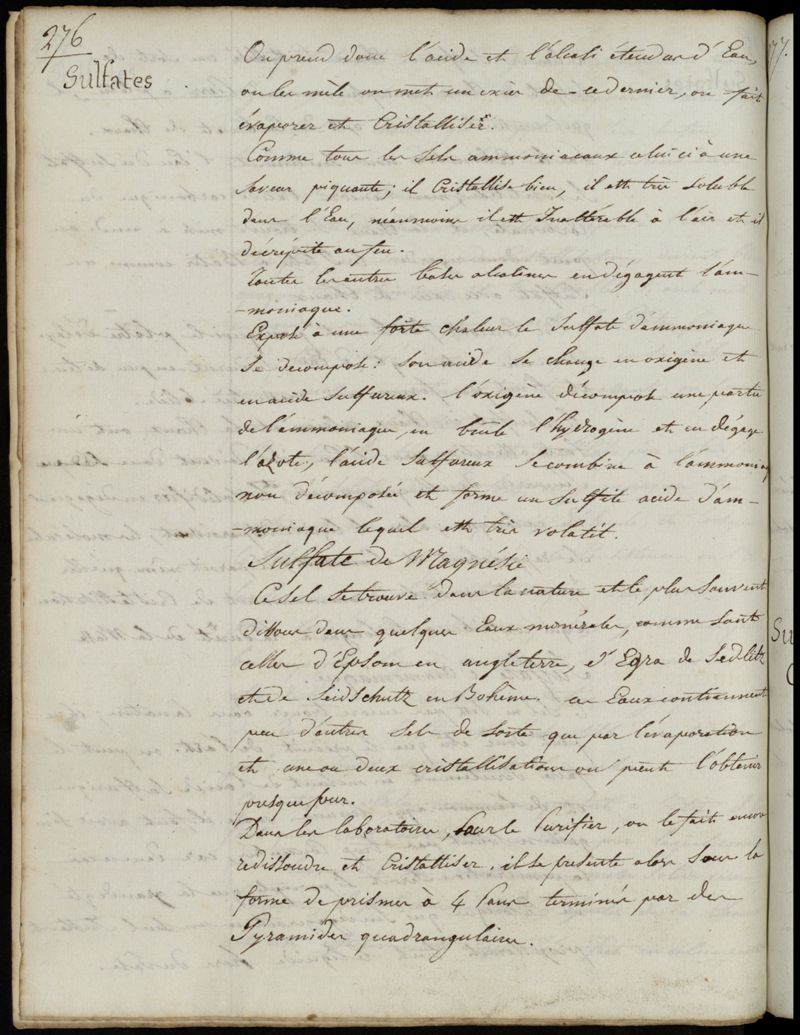 276
Sulfates
On prend donc l'acide et l'alcali étendus d'Eau,
on les mêle on met un excès de ce dernier, on fait
évaporer et Cristalliser.
Comme tous les Sels ammoniacaux celui ci à une
Saveur piquante; il Cristallise bien, il est très Soluble
dans l'Eau, néanmoins il est Inaltérable à l'air et il
décrépite au feu.
Toutes les autres bases alcalines en dégagent l'am-
-moniaque.
Exposé à une forte chaleur le Sulfate d'ammoniaque
Se décompose: Son acide Se change en oxigène et
en acide Sulfureux. l'oxigène décompose une partie
de l'ammoniaque, en brûle l'hydrogène et en dégage
l'azote, l'acide Sulfureux Se combine à l'ammoniaq
non décomposée et forme un Sulfite acide d'am-
-moniaque lequel est très volatil.
Sulfate de Magnésie
Ce Sel Se trouve dans la nature et le plus Souvent
dissous dans quelques Eaux minérales, comme Sont
celles d'Epsom en angleterre, d'Egra de Sedlitz
et de Seidschutz en Bohême. ces Eaux contiennent
peu d'autres Sels de Sorte que par l'évaporation
et une ou deux cristallisations on peut l'obtenir
presque pur.
Dans les laboratoires, Pour le Purifier, on le fait encore
redissoudre et Cristalliser. il Se présente alors Sous la
forme de prismes à 4 Pans terminés par des
Pyramides quadrangulaires.
77.
Su